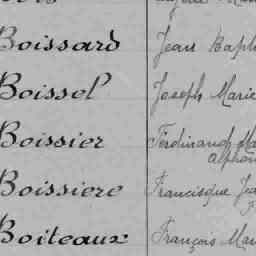 Boissard Jean Baptis
Boissel Joseph Marie
Boissier Ferdinand Ma
Alphon
Boissiere Francisque Jea
Boiteaux François Mari